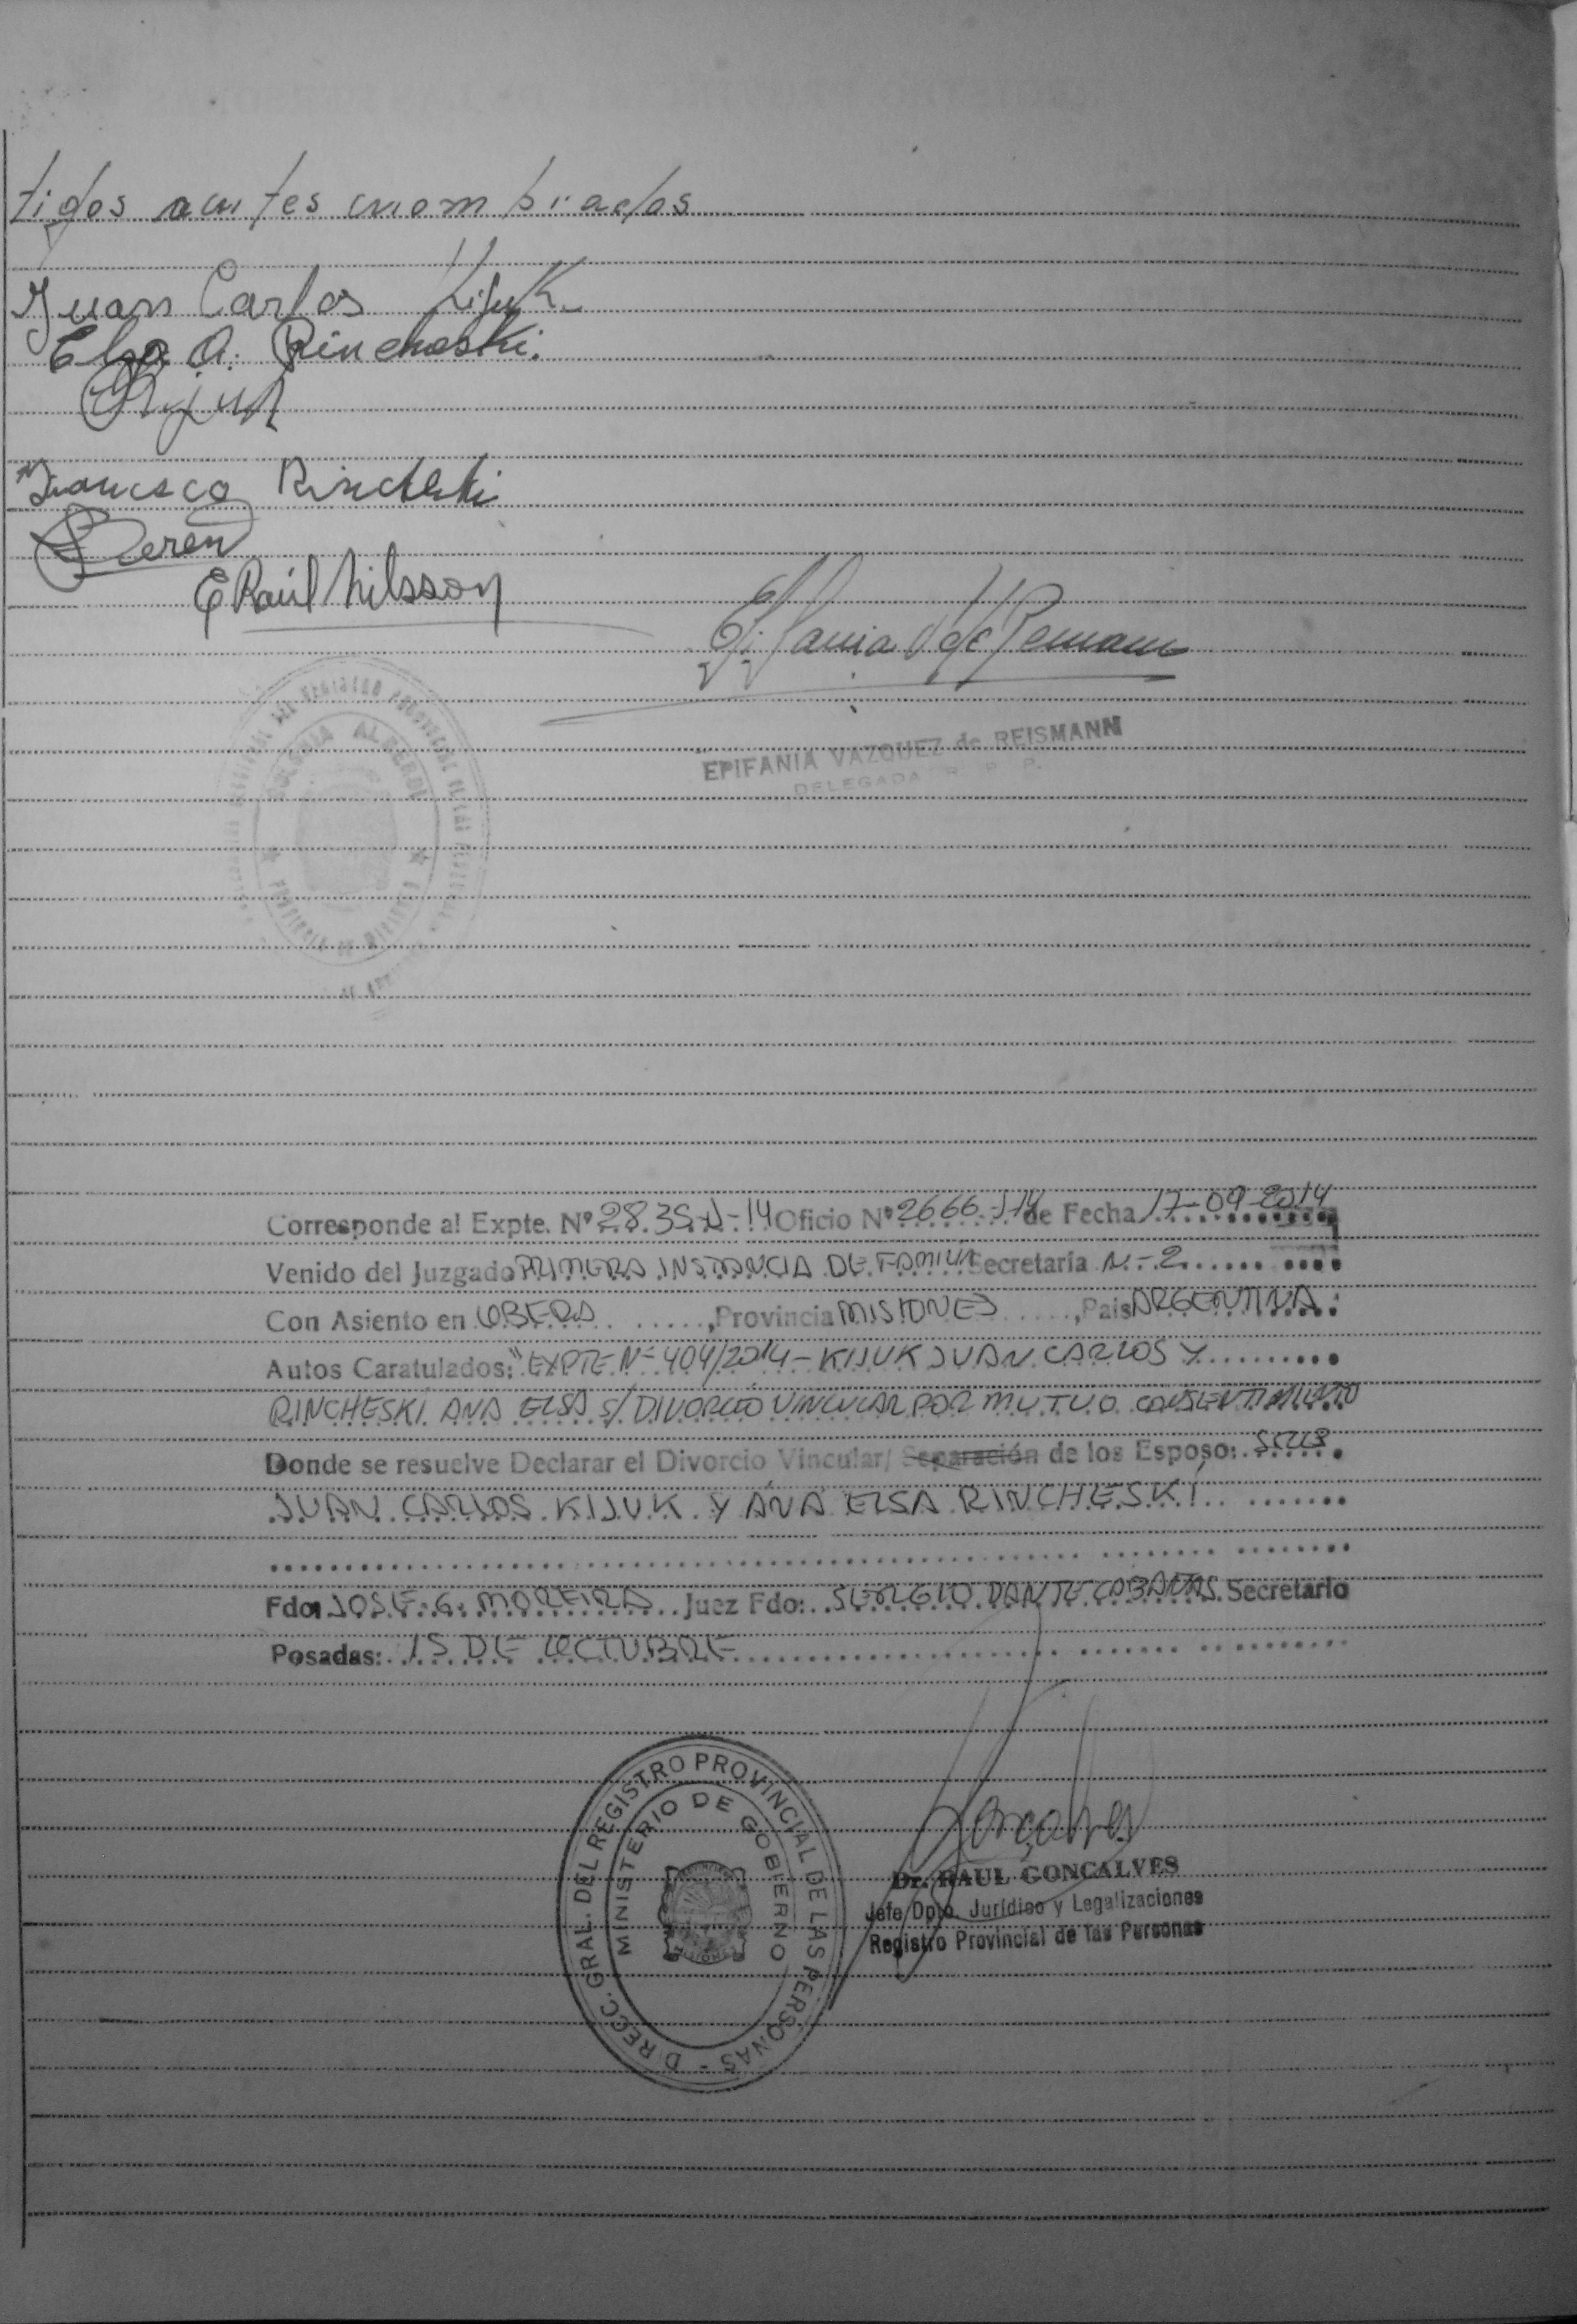 tigos antes nombrados
Juan Carlos Kijuk
Elsa A. Rincheski.
Kijuk
Francisco Rincheski
E Raúl Nilsson
EPIFANIA VAZQUEZ de REISMANN
DELEGADA R. P. P.
ALBERDI
Corresponde al Expte. Nº 2835-J-14 Oficio Nº 2666-J-14 de Fecha 17-09-2014
Venido del Juzgado PRIMERA INSTANCIA DE FAMILIA Secretaria N-2
Con Asiento en OBERA, Provincia MISIONES, Pais ARGENTINA.
Autos Caratulados: "EXPTE Nº 404/2014 - KIJUK JUAN CARLOS Y
RINCHESKI ANA ELSA S/ DIVORCIO VINCULAR POR MUTUO CONSENTIMIENTO
Donde se resuelve Declarar el Divorcio Vincular/ Separación de los Esposo:
JUAN CARLOS KIJUK Y ANA ELSA RINCHESKI
Fdo: JOSE G. MOREIRA Juez Fdo: SERGIO DANTE CABAÑAS Secretario
Posadas: 15 DE OCTUBRE
DIRECC. GRAL. DEL REGISTRO PROVINCIAL DE LAS PERSONAS -
MINISTERIO DE GOBIERNO
Dr. RAUL GONCALVES
Jefe Dpto. Jurídico y Legalizaciones
Registro Provincial de las Personas